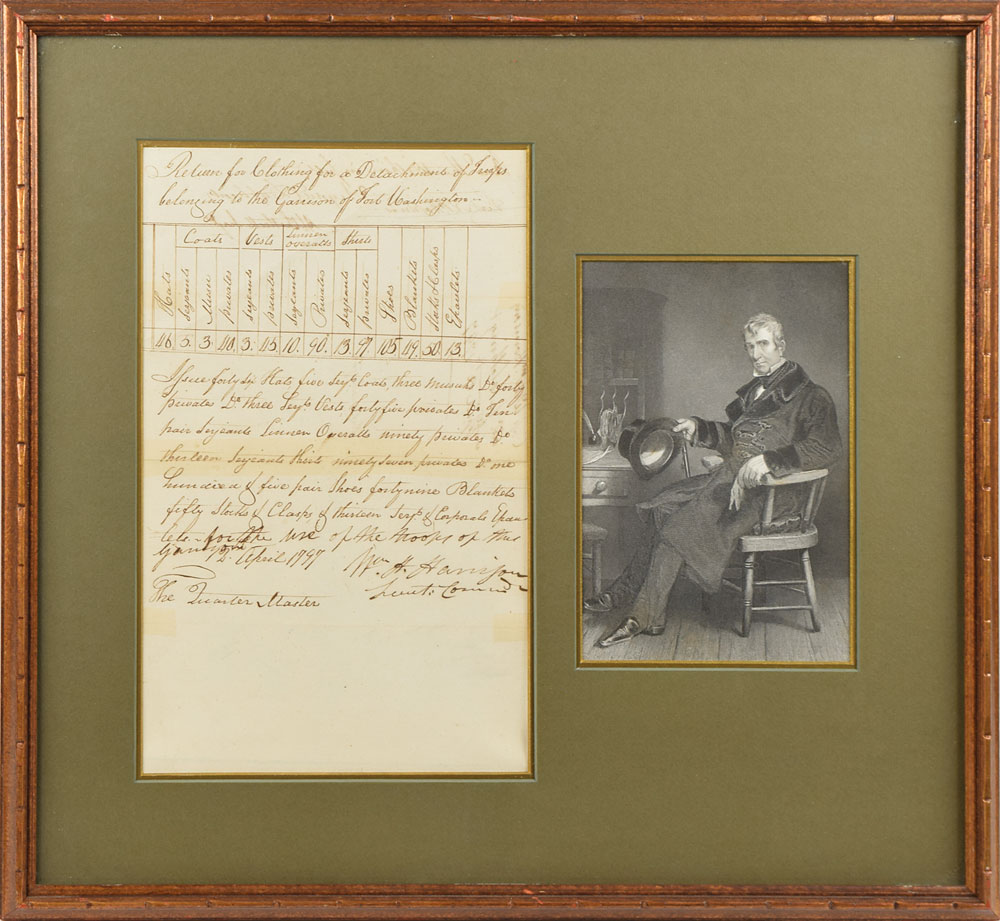 Return for Clothing for a Detachment of Troops
belonging to the Garrison of Fort Washington
Coats Vests Linnen overalls Shirts
Hats Serjeants Music privates Serjeants privates Serjeants Privates Serjeants privates Shoes Blankets Stocks & Clasps Epaulets
46 5. 3. 40. 3. 45. 10. 90. 13. 97. 105 49. 50. 13.
Issue forty six Hats five Serjts Coats, three musicks Do forty
privates Do three Serjts Vests forty five privates Do Ten
pair Serjeants Linnen Overalls ninety privates Do
thirteen Serjeants Shirts ninety seven privates Do one
hundred & five pair Shoes forty nine Blankets
fifty Stocks & Clasps & thirteen Serjts & Corporals Epau-
lets - for the use of the troops of this
Garrison 2d. April 1797 Wm. H. Harrison
The Quarter Master Lieut. Comm